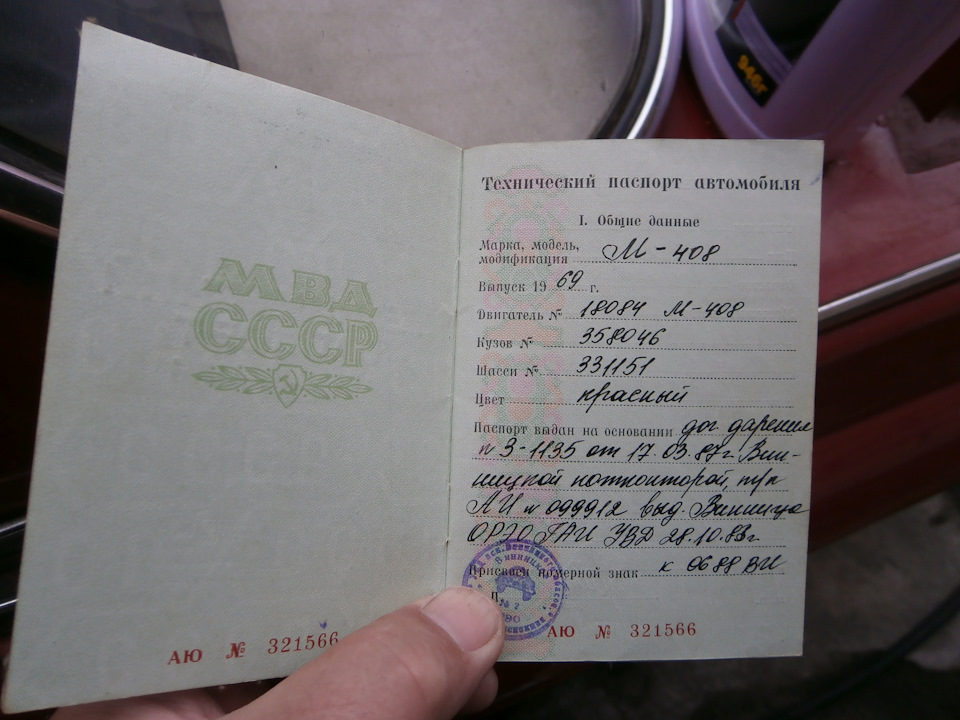 МВД
СССР
АЮ № 321566
Технический паспорт автомобиля
I. Общие данные
Марка, модель,
модификация М-408
Выпуск 19 69 г.
Двигатель № 18084 М-408
Кузов № 358046
Шасси № 331151
Цвет красный
Паспорт выдан на основании дог. дарения
№ 3-1135 от 17.03.87г. Вин-
ницкой
АИ № 099912 выд. Винница
ОРЭО ГАИ УВД 28.10.83г.
Присвоен номерной знак к 0688 ВИ
АЮ № 321566
946г